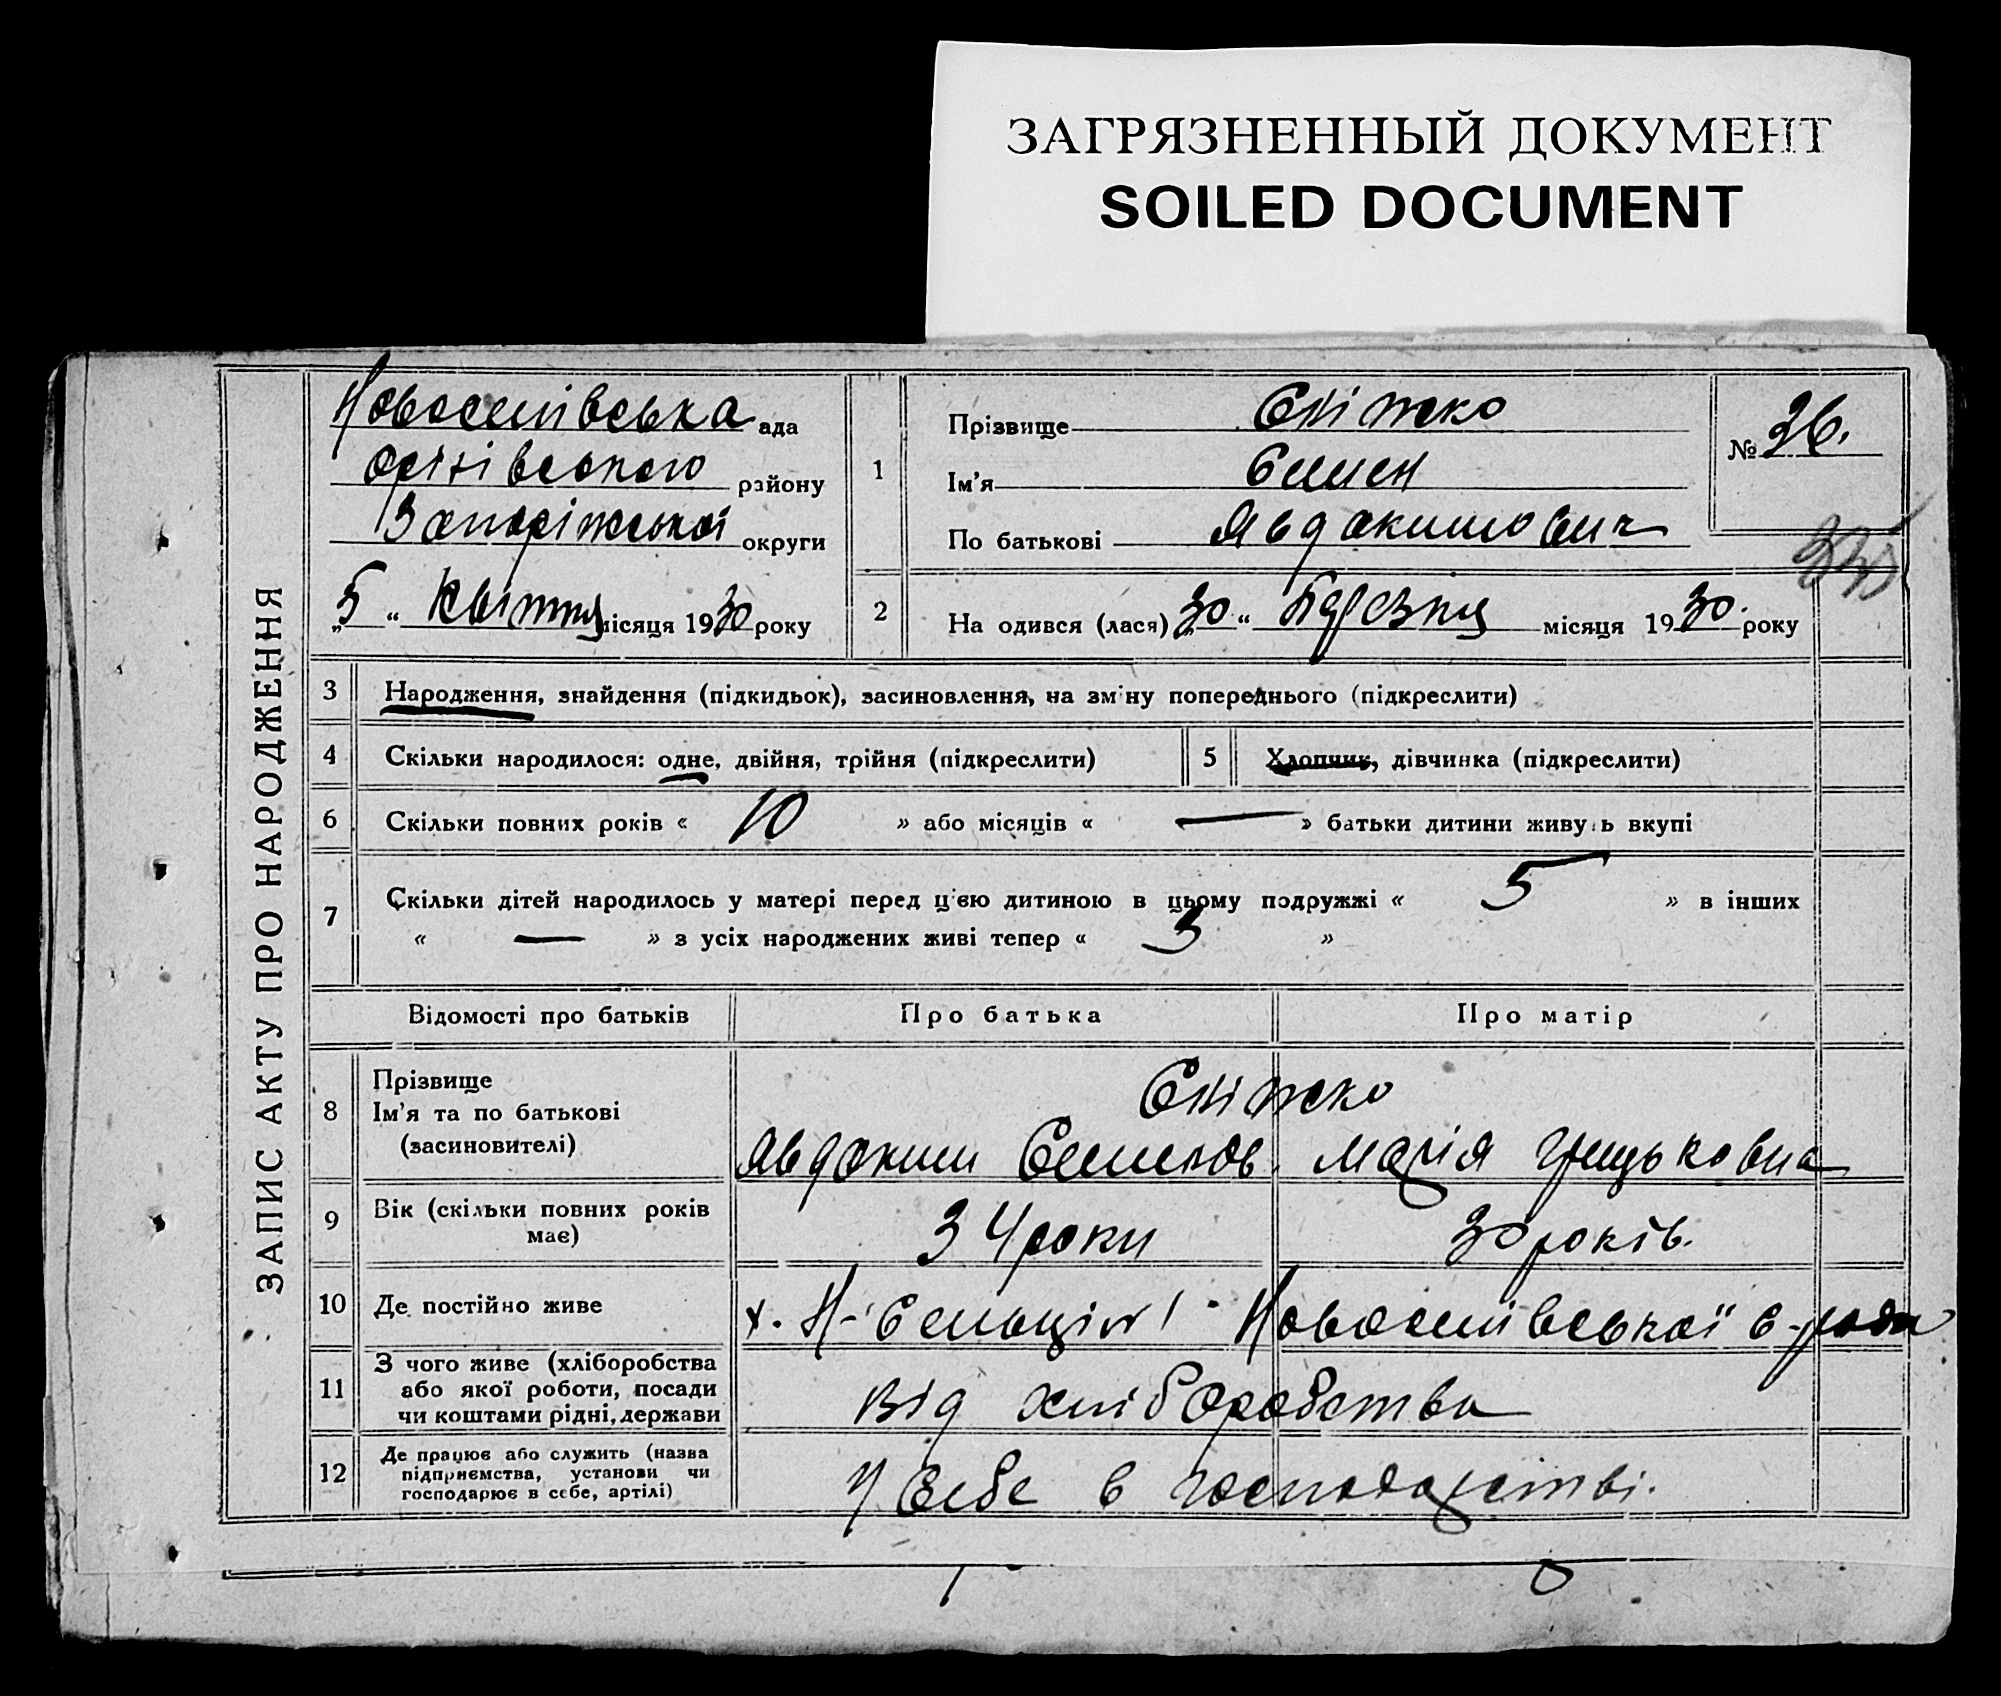 ЗАГРЯЗНЕННЫЙ ДОКУМЕНТ
SOILED DOCUMENT
ЗАПИС АКТУ ПРО НАРОДЖЕННЯ
Новоселівська ада
Оріхівського району
Запоріжської округи
„5“ Квітня місяця 1930 року
1
Прізвище Сніжко
Ім'я Семен
По батькові Явдокимович
№ 26.
2
На одився (лася) „30“ Березня місяця 1930. року
3 Народження, знайдення (підкидьок), засиновлення, на зм'ну попереднього (підкреслити)
4 Скільки народилося: одне, двійня, трійня (підкреслити)
5 Хлопчик, дівчинка (підкреслити)
6 Скільки повних років « 10 » або місяців « — » батьки дитини живуть вкупі
7 Скільки дітей народилось у матері перед ц'єю дитиною в цьому подружжі « 5 » в інших
« — » з усіх народжених живі тепер « 3 »
Відомості про батьків Про батька Про матір
8 Прізвище
Ім'я та по батькові
(засиновителі)
Сніжко
Явдоким Семенов. Марія Грицьковна
9 Вік (скільки повних років
має)
34 роки 30 років.
10 Де постійно живе
х. Н- Новоселівської с-ради
11 З чого живе (хліборобства
або якої роботи, посади
чи коштами рідні, держави
від хліборобства
12 Де працює або служить (назва
підприємства, установи чи
господарює в себе, артілі)
У себе в господарстві.